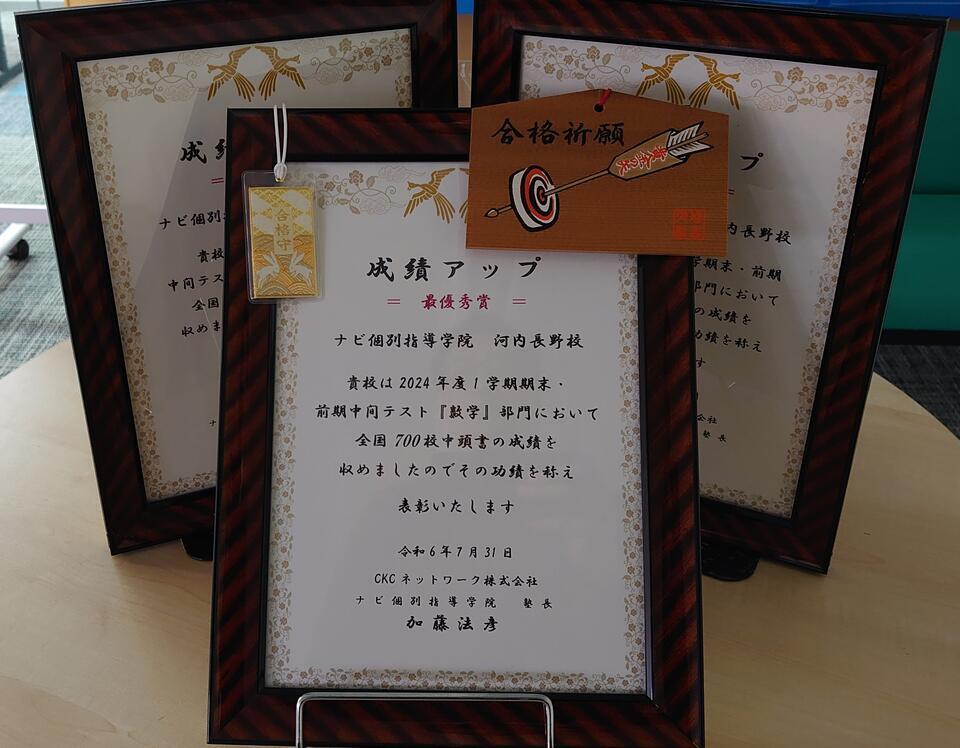 合格祈願
黄金の矢
合格守
成績アップ
= 最優秀賞 =
ナビ個別指導学院 河内長野校
貴校は2024年度1学期期末・
前期中間テスト『数学』部門において
全国700校中頭書の成績を
収めましたのでその功績を称え
表彰いたします
令和6年7月31日
CKCネットワーク株式会社
ナビ個別指導学院 塾長
加藤法彦
成績
ナビ個別
貴校
中間テス
全国
収めま
プ
内長野校
学期期末・前期
部門において
の成績を
功績を称え
す
会社
塾長